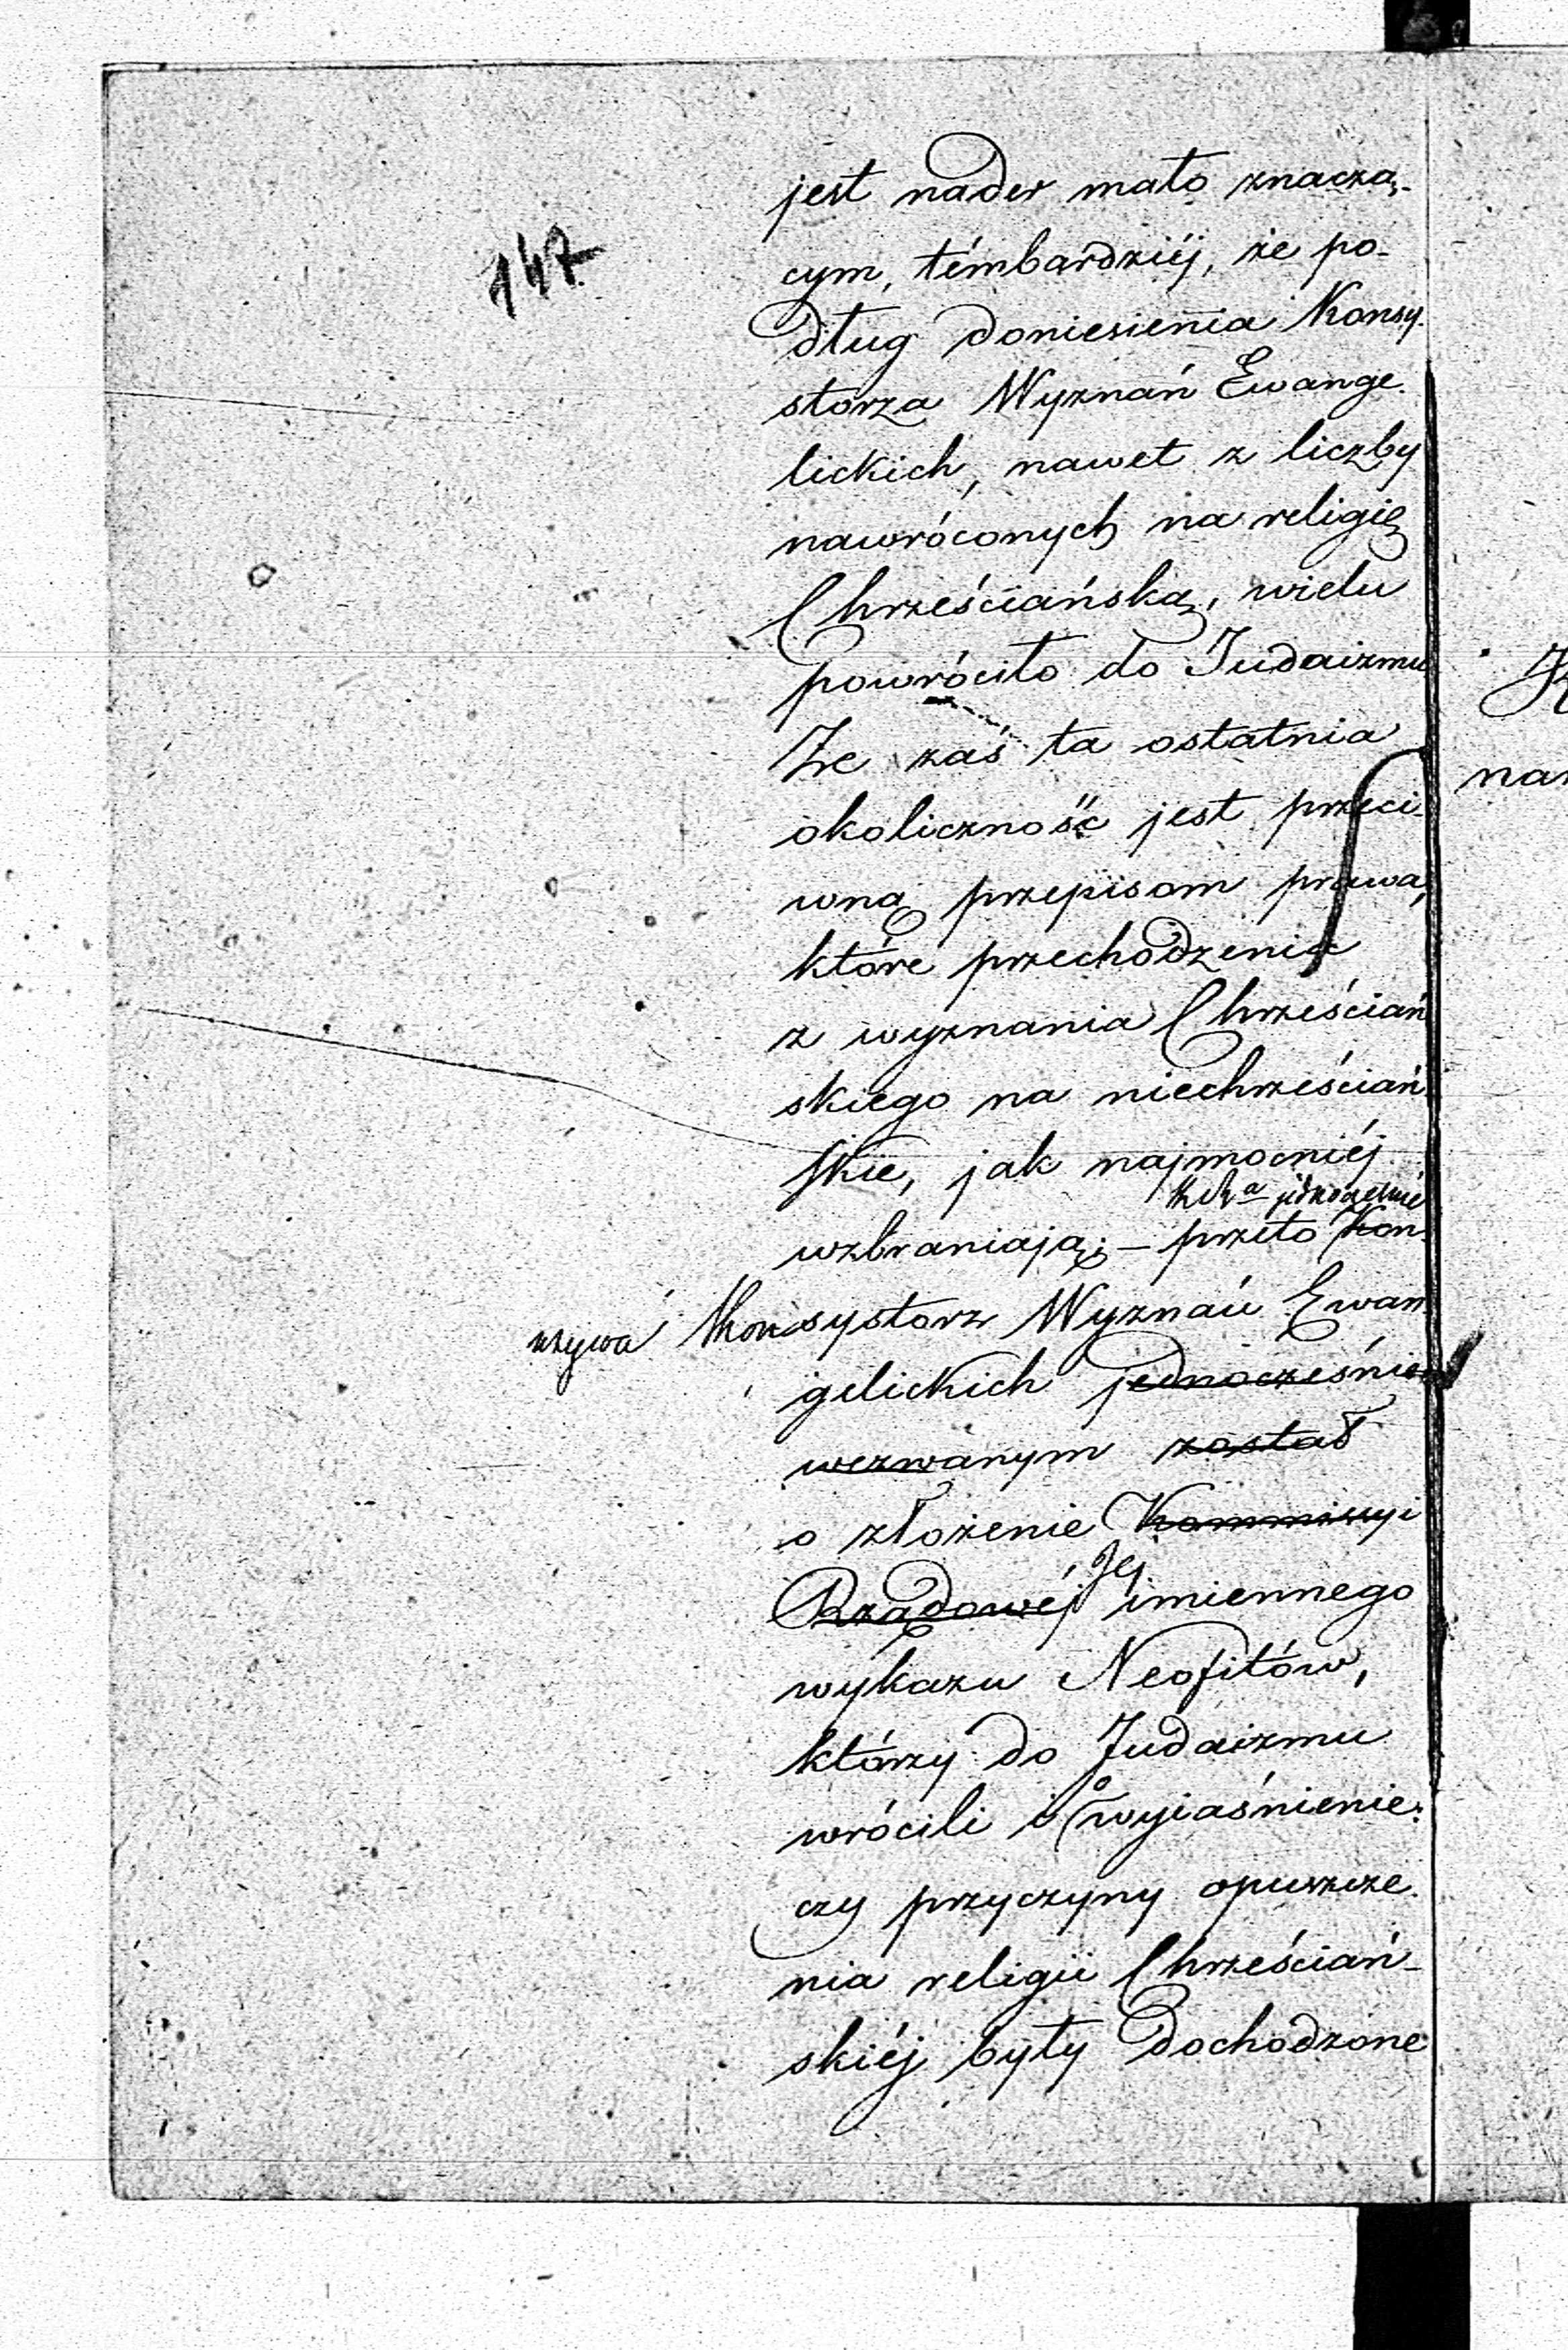 147.
jest nader mało znaczą-
cym, témbardziéj, że po-
dług doniesienia Konsy-
storza Wyznań Ewange-
lickich, nawet z liczby
nawróconych na religię
Chrześciańską, wielu
powróciło do Judaizmu
Że zaś ta ostatnia
okoliczność jest przeci-
wną przepisom prawa,
które przechodzenia
z wyznania Chrześciań
skiego na niechrześciań-
skie, jak najmocniéj
jednocześnie
wzbraniają; – przeto Kon-
wzywa Konsystorz Wyznań Ewan
gelickich jednocześnie
wezwanym został
o złożenie Kommissyi
Rządowéj Jej imiennego
wykazu Neofitów,
którzy do Judaizmu
wrócili i o wyiaśnienie:
czy przyczyny opuszcze-
nia religii Chrześciań-
skiéj były dochodzone